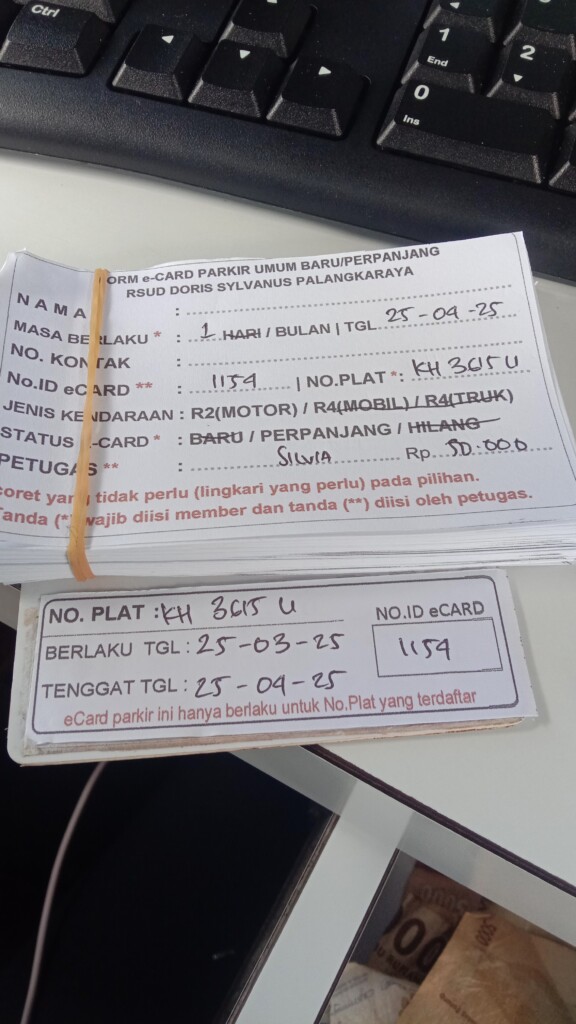 Ctrl
1
End
2
0
Ins
ORM e-CARD PARKIR UMUM BARU/PERPANJANG
RSUD DORIS SYLVANUS PALANGKARAYA
NAMA :
MASA BERLAKU * : 1 HARI / BULAN | TGL 25-04-25
NO. KONTAK :
No.ID eCARD ** : 1154 | NO.PLAT *: KH 3615 U
JENIS KENDARAAN : R2(MOTOR) / R4(MOBIL) / R4(TRUK)
STATUS -CARD * : BARU / PERPANJANG / HILANG
PETUGAS ** : SILVIA Rp 50.000
coret yang tidak perlu (lingkari yang perlu) pada pilihan.
Tanda (*) wajib diisi member dan tanda (**) diisi oleh petugas.
NO. PLAT : KH 3615 U
NO.ID eCARD
BERLAKU TGL : 25-03-25
1154
TENGGAT TGL : 25-04-25
eCard parkir ini hanya berlaku untuk No.Plat yang terdaftar